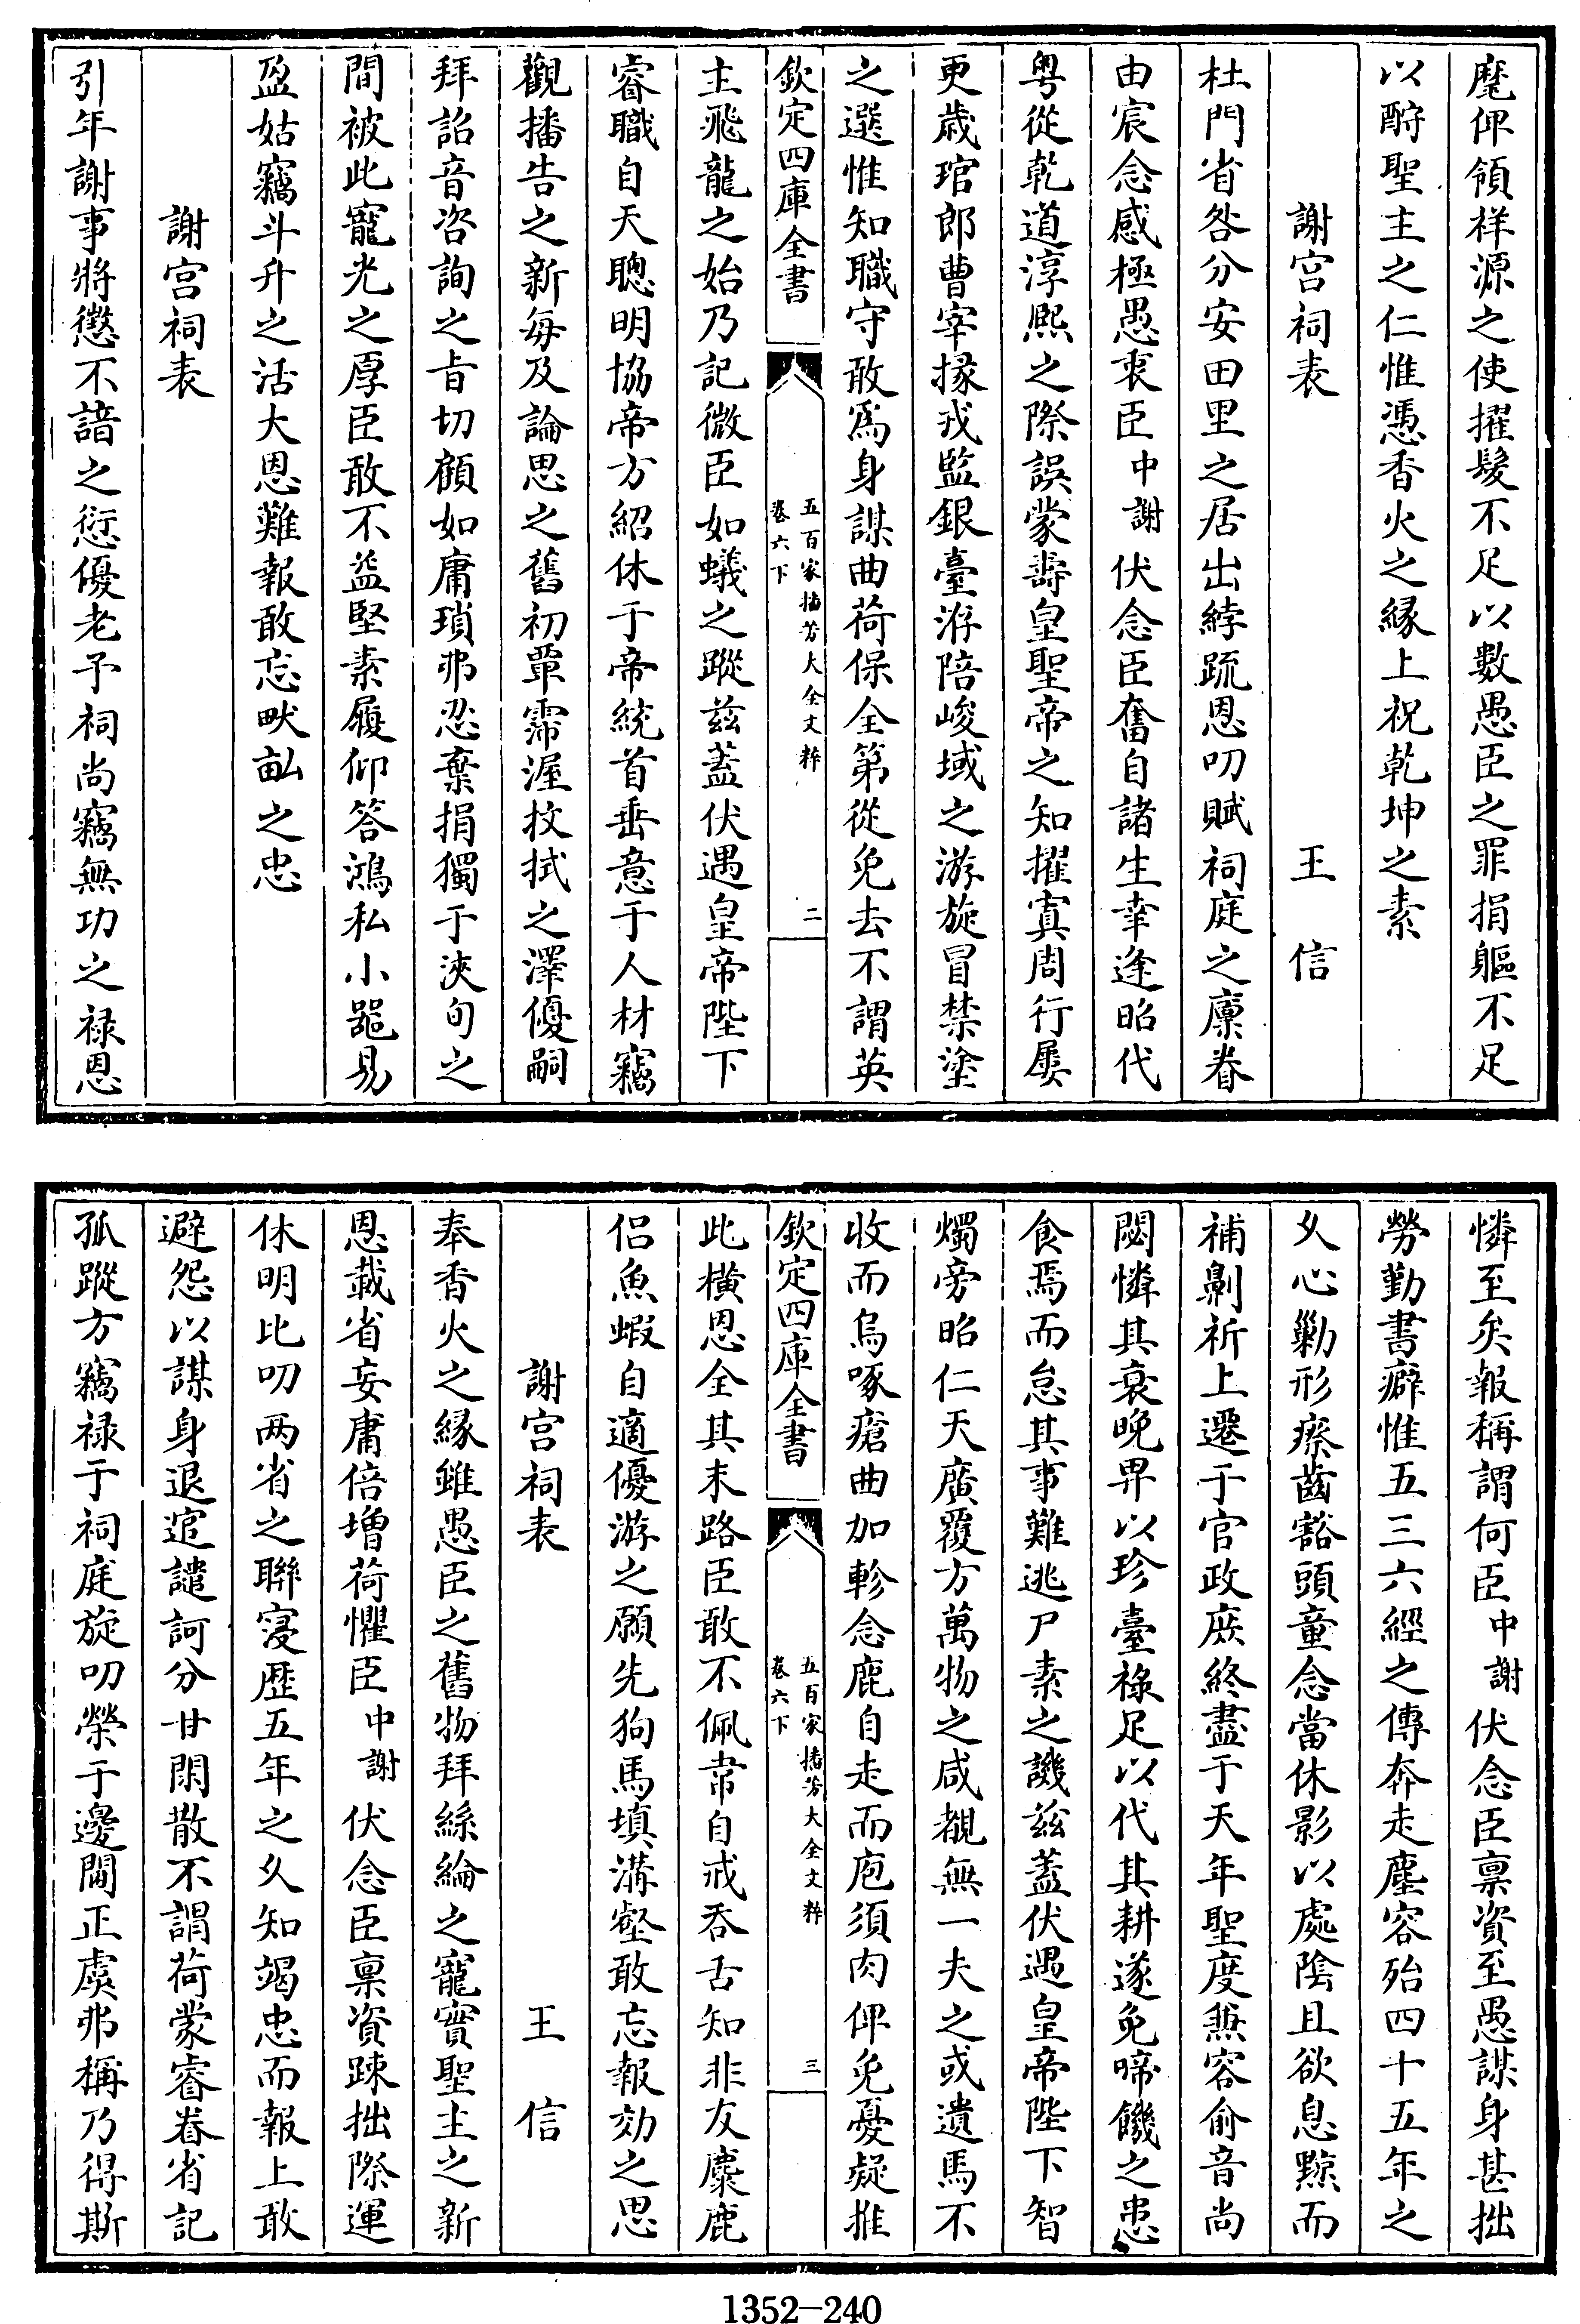 麾俾領祥源之使擢髮不足以數愚臣之罪捐軀不足
以酧聖主之仁惟憑香火之縁上祝乾坤之素
謝宫祠表　王　信
杜門省咎分安田里之居出綍疏恩叨賦祠庭之廩眷
由宸念感極愚衷臣中謝伏念臣奮自諸生幸逢昭代
粤從乾道淳熙之際誤蒙壽皇聖帝之知擢寘周行屢
更歳琯郎曹宰掾戎監銀臺洊陪峻域之游旋冒禁塗
之選惟知職守敢爲身謀曲荷保全第從免去不謂英
欽定四庫全書
五百家播芳大全文粹
卷六下
二
主飛龍之始乃記微臣如蟻之蹤兹蓋伏遇皇帝陛下
睿職自天聰明協帝方紹休于帝統首垂意于人材竊
觀播告之新每及論思之舊初覃霈渥抆拭之澤優嗣
拜詔音咨詢之㫖切顧如庸瑣弗忍棄捐獨于浹旬之
間被此寵光之厚臣敢不益堅素履仰答鴻私小噐易
盈姑竊斗升之活大恩難報敢忘畎畝之忠
謝宫祠表
引年謝事將懲不諳之愆優老予祠尚竊無功之禄恩
憐至矣報稱謂何臣中謝伏念臣禀資至愚謀身甚拙
勞勤書癖惟五三六經之傳奔走塵容殆四十五年之
乆心勦形瘵齒豁頭童念當休影以處陰且欲息黥而
補劓祈上遷于官政庻終盡于天年聖度兼容俞音尚
閟憐其衰晚畀以珍臺禄足以代其耕遂免啼饑之患
食焉而怠其事難逃尸素之譏兹蓋伏遇皇帝陛下智
燭旁昭仁天廣覆方萬物之咸覩無一夫之或遺馬不
收而烏啄瘡曲加軫念鹿自走而庖須肉俾免憂疑推
欽定四庫全書
五百家播芳大全文粹
卷六下
三
此横恩全其末路臣敢不佩韋自戒吞舌知非友麋鹿
侣魚蝦自適優游之願先狗馬填溝壑敢忘報効之思
謝宫祠表　王　信
奉香火之縁雖愚臣之舊物拜絲綸之寵實聖主之新
恩載省妄庸倍增荷懼臣中謝伏念臣禀資踈拙際運
休明比叨两省之聯寖歴五年之乆知竭忠而報上敢
避怨以謀身退逭譴訶分甘閑散不謂荷蒙睿眷省記
孤蹤方竊禄于祠庭旋叨榮于邊閫正虞弗稱乃得斯
1352-240